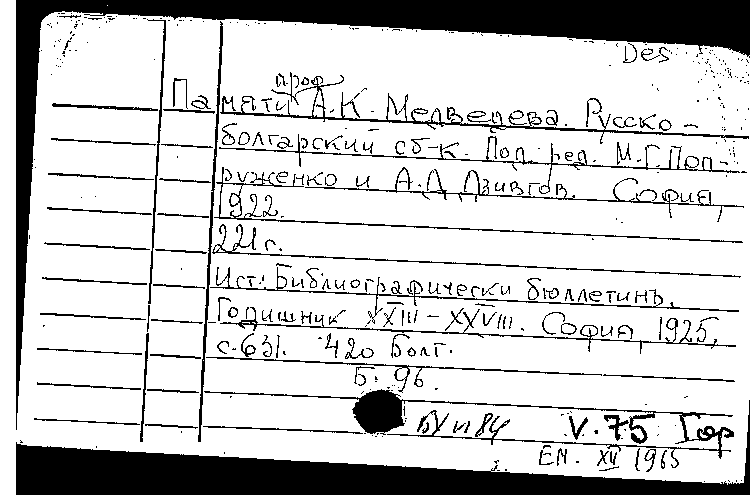 Des
проф
Памяти А.К. Медведева. Русско-
болгарский сб-к. Под ред. М.Г. Поп-
руженко и А.Д. Дзивгов. София,
1922.
221 с.
Ист: Библиографически бюллетинъ.
Годишник XXIII-XXVIII. София, 1925,
с. 631. 420 Болг.
Б. 96.
БУ п 84 V.75 Гор
ЕМ. XII 1965